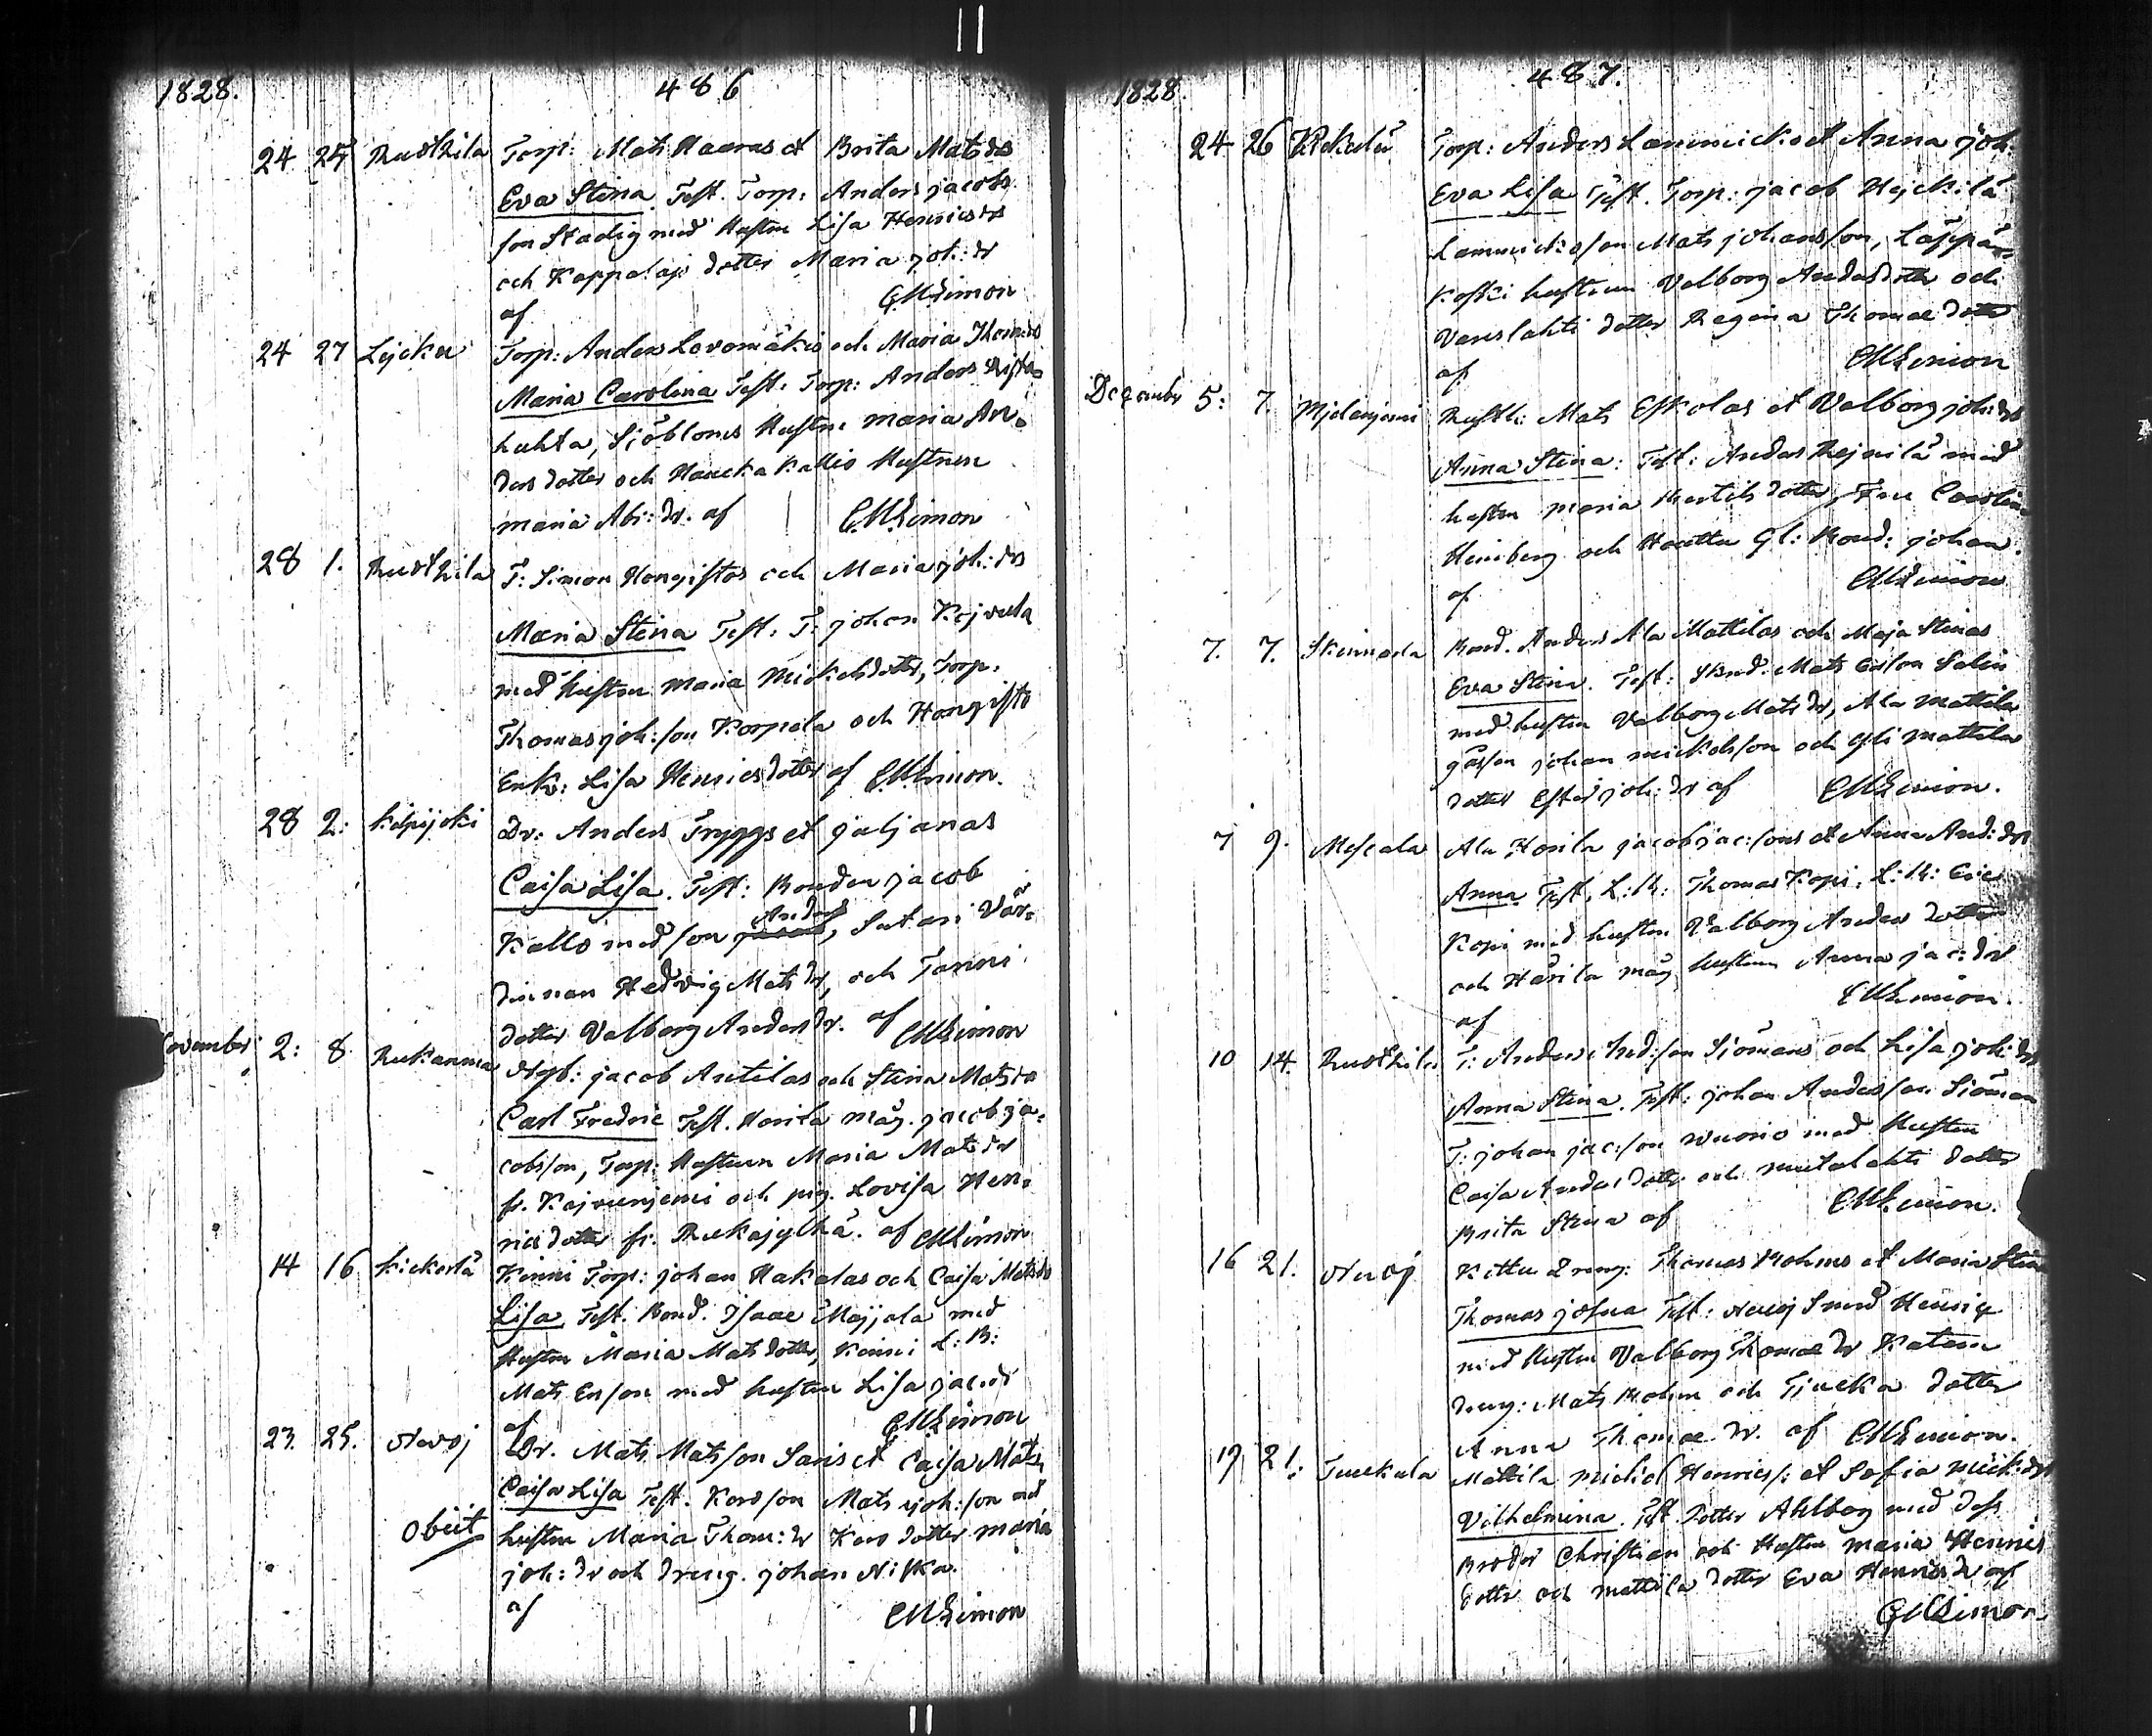 1828. 486
24 25 Rudskila Torp: Mats Haaras et Brita Matsdr
Eva Stina. Test. Torp: Anders jacobs
son Stadig med Hustru Lisa Henricsdr
och Koppelajs dotter Maria joh: dr
af CMLimon
24 27 Lycku Torp: Anders Lovomäkis och Maria Thom:dr
Maria Carolina Test: Torp: Anders Rista
huhta, Siöbloms Hustru maria An:
ders dotter och Haucka kallio Hustrun
maria Abr: dr. af CMLimon
28 1. Rudskila T: Simon Hongistos och Maria joh: dr
Maria Stina Test. T: johan Kejvula
med hustru Maria Mickelsdotter, Torp:
Thomas joh:son Korpela och Hongisto
Enk: Lisa Henricsdotter af CMLimon.
28 2: Kilpijoki Dr: Anders Tryggs et juljanas
Caisa Lisa. Test: Bonden jacob
Anders
Kallo med son, Sutari Vär:
dinnan Hedvig Mats dr, och Tanni
dotter Valborg Anders dr. af CMLimon
November 2: 8. Ruckanma Nyb: jacob Antilas och Stina Matsdr
Carl Fredric Test. Horila måg. jacob ja:
cobsson, Torp: Hustrun Maria Mats dr
fr. Kojvunjemi och pig. Lovisa Hen:
rics dotter fr. Ruckajylhä. af CMLimon
14 16 Kickerlä Kinni Torp: johan Hakalas och Caisa Matsdr
Lisa Test. Bond. Isaac Majjala med
Hustru Maria Matsdotter, Kinni L: B:
Mats Erson med hustru Lisa jac: dr
af CMLimon
23. 25. Nuoj Dr. Mats Matsson Saris et Caisa Mats
Caisa Lisa Test. Korsson Mats joh:son och
Obiit hustru Maria Thom: dr Kors dotter maria
joh: dr och Dreng. johan Niska.
af CMLimon
1828. 487.
24 26 Kickulu Torp: Anders Lammick et Anna joh:
Eva Lisa Test. Torp: jacob Hejckilä
Lammickosson Mats johansson, Läppän
koski hustrun Valborg Andersdotter och
Vanslahti dotter Regina Thomae dotter
af CMLimon
December 5: 7. Mjelanjemi Rustl: Mats Eskolas et Valborg joh: dr
Anna Stina: Test: Anders Rejnilä med
hustru maria Mertils dotter, Fru Carolin
Heinberg och Houttu Gl: Bond: johan.
af CMLimon
7. 7. Skinnarla Bond. Anders Ala Mattilas och Maja Stinas
Eva Stina. Test: Mats Ersson Salin
med hustru Valborg Mats dr, Ala Mattila
gåsson johan mickelsson och yli mattila
dotter Ester joh: dr af CMLimon.
7 9. Mescala Ala Horila jacob jac:sons et Anna And: dr
Anna. Test. L:B: Thomas Kopi, L:B: Eric
Kopi med hustru Valborg Anders dotter
och Härila måg hustrun Anna jac: dr
af CMLimon.
10 14. Rudskila T: Anders And:son Siömans och Lisa joh: dr
Anna Stina. Test: johan Andersson Siöman
T: johan jac:son Wuorio med Hustru
Caisa Anders dotter och mutalahti dotter
Brita Stina af CMLimon.
16 21. Nuoj Kettu Dreng: Thomas Bohms et Maria Stin
Thomas josua Test: Nuoj Smed Henric
med Hustru Valborg Thomae dr Katam
Dreng: Mats Bohm och Tjucka dotter
Anna Thomae dr. af CMLimon.
19 21: Tuckula Mattila Michel Henrics: et Sofia Mick: dr
Vilhelmina. Test. Dotter Ahlberg med dess
Broder Christian och Hustru maria Henrics
dotter och mattila dotter Eva Henrics dr af
CMLimon.